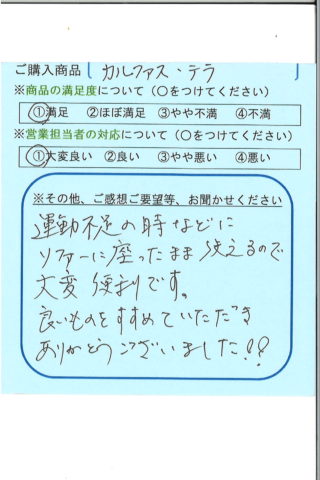 ご購入商品 カルファス・テラ
※商品の満足度について（○をつけてください）
①満足 ②ほぼ満足 ③やや不満 ④不満
※営業担当者の対応について（○をつけてください）
①大変良い ②良い ③やや悪い ④悪い
※その他、ご感想ご要望等、お聞かせください
運動不足の時などに
ソファーに座ったまま洗えるので
大変便利です。
良いものをすすめていただき
ありがとうございました!!